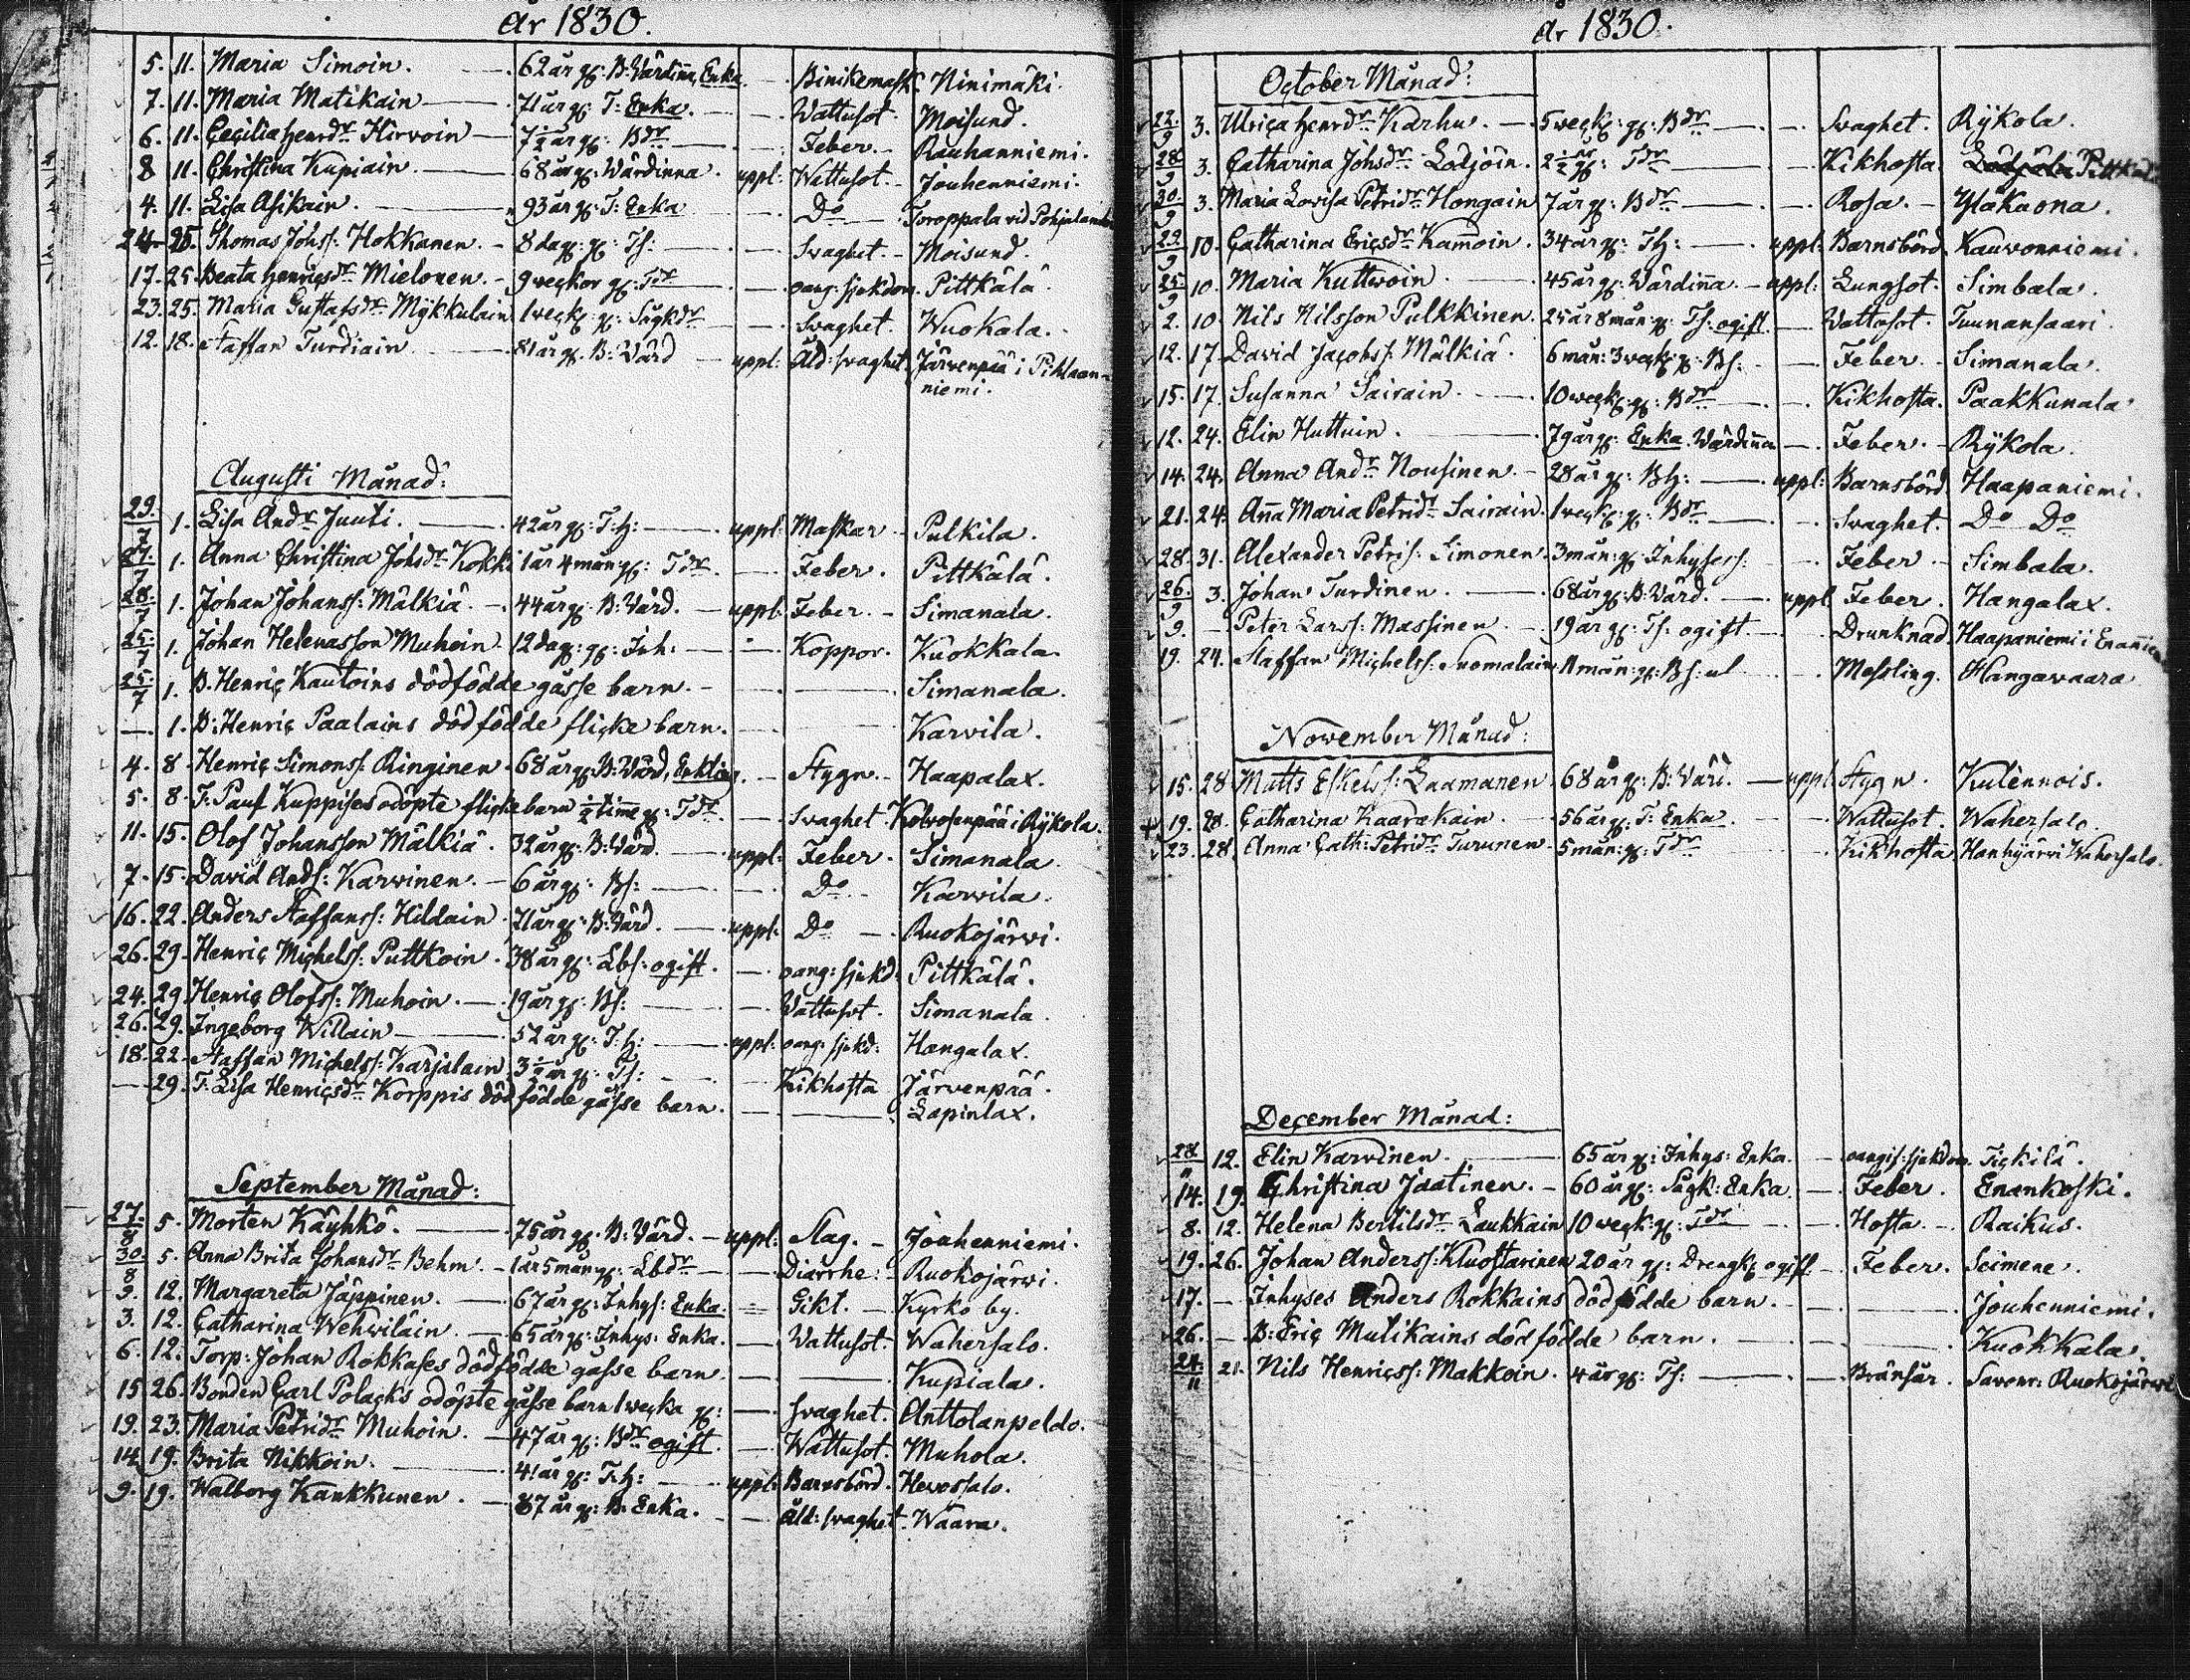 År 1830.
5. 11. Maria Simoin. 62 år gl: B: Värdinna, Enka Binikemask. Ninimäki.
7. 11. Maria Matikain 71 år gl: T: Enka. Wattusot. Moisund.
6. 11. Cecilia Henrdr Hirvoin 7½ år gl: Bdr Feber. Rauhanniemi.
8 11. Christina Kupiain. 68 år gl: Wärdinna. uppl: Wattusot. Jouhenniemi.
4. 11. Lisa Asikain. 93 år gl: T: Enka Do Toroppala vid
24. 25. Thomas Johss: Hokkanen. 8 dag: gl: Ts: Svaghet. Moisund.
17. 25. Beata Henricsdr Mielonen. 9 veckor gl: Tdr oang: sjukdom. Pittkälä.
23. 25. Maria Gustafsdr Mykkulain 1 veck: gl: Sågkdr Svaghet. Wuokala.
12. 18. Staffan Turdiain 81 år gl. B: Värd uppl: Åld: svaghet. Järvenpää i
niemi.
Augusti Månad:
29/7 1. Lisa Andr Juuti. 42 år gl: T: H: uppl: Maskar Pulkila.
27/7 1. Anna Christina Johsdr Kokki 1 år 4 mån gl: Tdr. Feber. Pittkälä.
28/7 1. Johan Johanss: Mälkiä. 44 år gl: B: Värd. uppl: Feber. Simanala.
25/7 1. Johan Helenasson Muhoin. 12 dag: gl: Inh: Koppor. Kuokkala.
25/7 1. B. Henric Kautoins dödfödde gosse barn. Simanala.
1. B: Henric Paalains dödfödde flicke barn. Karvila.
4. 8. Henric Simonss: Ringinen. 68 år gl: B: Värd, Enkling. Stygn. Haapalax.
5. 8. T: Kuppises odöpte flicke barn ½ timme gl: Tdr. Svaghet i Rykola.
11. 15. Olof Johansson Mälkiä. 32 år gl: B: Värd. uppl: Feber. Simanala
7. 15. David Ands: Karvinen. 6 år gl: Bs: Do Karvila.
16. 22. Anders Staffanss: Hildain 71 år gl: B: Värd. uppl: Do Ruokojärvi.
26. 29. Henric Michelss: Puttkoin. 38 år gl: Lbs: ogift. oang: sjukd: Pittkälä.
24. 29. Henric Olofss: Muhoin. 19 år gl: Bs: Wattusot. Simanala.
26. 29. Ingeborg Willain 52 år gl: T: H: uppl: oang: sjukd: Hangalax.
18. 22. Staffan Michelss: Karjalain 3½ år gl: Ts: Kikhosta Järvenpää.
29. T: Lisa Henricsdr Korppis dödfödde gosse barn. Lapinlax.
September Månad:
27/8 5. Morten Käyhkö. 75 år gl. B: Värd. uppl: Slag. Jouhenniemi.
30/8 5. Anna Brita Johansdr Behm. 1 år 5 mån gl: Lbdr Diarrhe: Ruokojärvi.
3. 12. Margareta Jäppinen. 67 år gl: Inhys: Enka. Gikt. Kyrko by.
3. 12. Catharina Wehwiläin. 65 år gl: Inhys: Enka. Wattusot. Wahersalo.
6. 12. Torp: Johan Rokkases dödfödde gosse barn. Kupiala.
15 26. Bonden Carl Polacks odöpte gosse barn 1 vecka gl: svaghet. Anttolanpeldo.
19. 23. Maria Petridr Muhoin. 47 år gl: Bdr ogift. Wattusot. Muhola.
14 19. Brita Nikkoin. 41 år gl: T: H: uppl: Barnsbörd. Hevossalo.
9. 19. Walborg Kankkunen. 87 år gl: B: Enka. Åld: svaghet. Waara.
År 1830.
October Månad:
22/9 3. Ulrica Henrdr Karhu. 5 veck: gl: Bdr Svaghet. Rykola.
28/9 3. Catharina Johsdr Lodjoin. 2½ år gl: Tdr Kikhosta.
30/9 3. Maria Lovisa Petridr Hongain 7 år gl: Bdr Rosa. Yläkaona.
29/9 10. Catharina Ericsdr Kamoin. 34 år gl: TH: uppl: Barnsbörd. Kauvonniemi.
25/9 10. Maria Kuttvoin 45 år gl: Värdinna. uppl: Lungsot. Simbala.
2. 10. Nils Nilsson Pulkkinen. 25 år 8 mån: gl: Ts: ogift. Wattusot. Tuunansaari.
12. 17. David Jacobss: Mälkiä. 6 mån: 3 veck: gl: Bs: Feber. Simanala.
15. 17. Susanna Sairain. 10 veck: gl: Bdr Kikhosta. Paakkunala
12. 24. Elin Huttuin. 79 år gl: Enka. Värdinna Feber. Rykola.
14. 24. Anna Andr Nousinen. 28 år gl: BH: uppl: Barnsbörd. Haapaniemi.
21. 24. Anna Maria Petridr Sairain. 1 veck: gl: Bdr Svaghet. Do Do
28. 31. Alexander Petris: Simonen. 3 mån: gl: Inhyses: Feber. Simbala.
26/9 3. Johan Turdinen. 68 år gl: B: Värd. uppl Feber. Hangalax.
9. Peter Larss: Massinen. 19 år gl: Ts: ogift Drunknad. Haapaniemi i
19. 24. Staffan Michelss: Suomalain 11 mån: gl: Bs: Messling. Hangavaara
November Månad:
15. 28 Matts Eskelss: Laamanen. 68 år gl: B: Värd. uppl Stygn. Kulennois.
19. 28. Catharina Kaarakain. 56 år gl: T: Enka. Wattusot. Wahersalo.
23. 28. Anna Cath: Petridr Turunen. 5 mån: gl: Tdr Kikhosta Hanhijärvi Wahersalo.
December Månad:
28/11 12. Elin Karvinen. 65 år gl: Inhys: Enka. oangif: sjukdom. Tickilä.
14. 19. Christina Jaatinen. 60 år gl: Sågk: Enka. Feber. Enankoski.
8. 12. Helena Bertilsdr Laukkain 10 veck: gl: Tdr Hosta. Raikus.
19. 26. Johan Anderss: Kluostarinen 20 år gl: Dreng ogift Feber. Soimene.
17. Inhyses Anders Rokkains dödfödde barn. Jouhenniemi.
26. B: Eric Mutikains dödfödde barn. Kuokkala.
24/11 21. Nils Henricss: Makkoin. 4 år gl: Ts: Brånsår. Savonr: Ruokojärvi